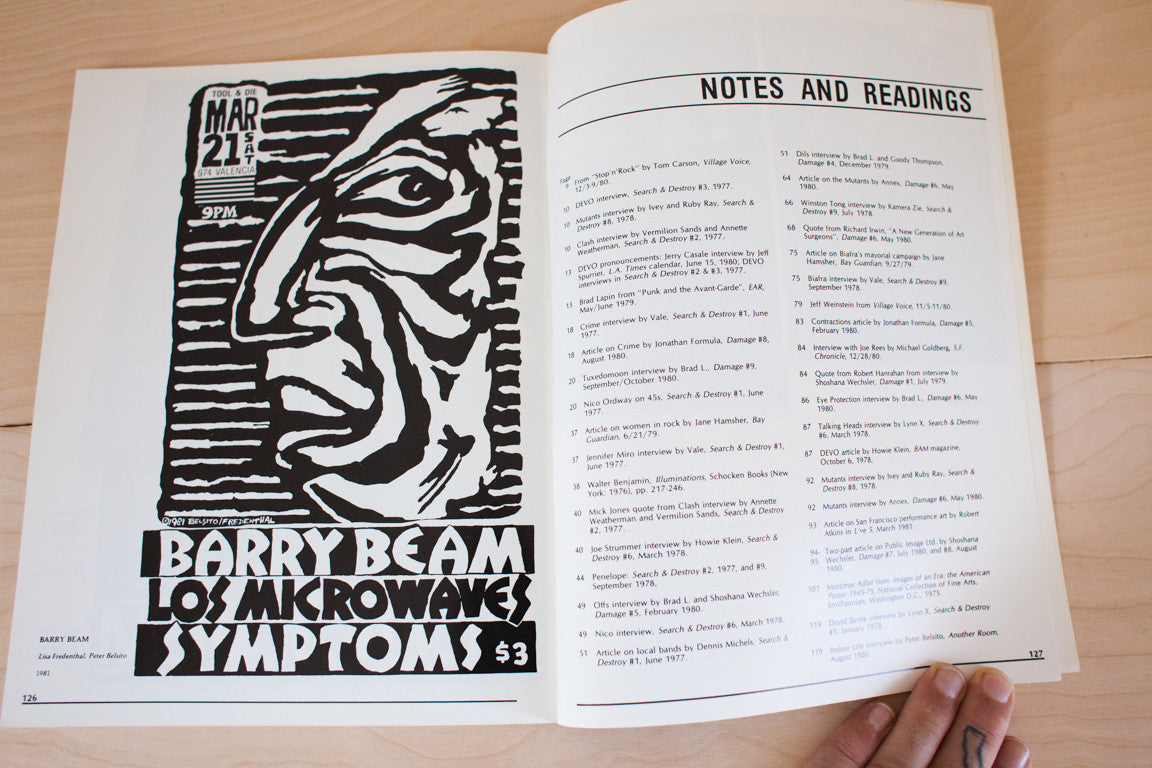 TOOL & DIE
MAR
21 SAT
974 VALENCIA
9PM
©1981 BELSITO/FREDENTHAL
BARRY BEAM
LOS MICROWAVES
SYMPTOMS $3
BARRY BEAM
Lisa Fredenthal, Peter Belsito
1981
126
NOTES AND READINGS
Page
9 From "Stop'n'Rock" by Tom Carson, Village Voice,
12/3-9/80.
10 DEVO interview, Search & Destroy #3, 1977.
10 Mutants interview by Ivey and Ruby Ray, Search &
Destroy #8, 1978.
10 Clash interview by Vermilion Sands and Annette
Weatherman, Search & Destroy #2, 1977.
13 DEVO pronouncements: Jerry Casale interview by Jeff
Spurrier, L.A. Times calendar, June 15, 1980; DEVO
interviews in Search & Destroy #2 & #3, 1977.
13 Brad Lapin from "Punk and the Avant-Garde", EAR,
May/June 1979.
18 Crime interview by Vale, Search & Destroy #1, June
1977.
18 Article on Crime by Jonathan Formula, Damage #8,
August 1980.
20 Tuxedomoon interview by Brad L., Damage #9,
September/October 1980.
20 Nico Ordway on 45s, Search & Destroy #1, June
1977.
37 Article on women in rock by Jane Hamsher, Bay
Guardian, 6/21/79.
37 Jennifer Miro interview by Vale, Search & Destroy #1,
June 1977.
38 Walter Benjamin, Illuminations, Schocken Books (New
York, 1976), pp. 217-246.
40 Mick Jones quote from Clash interview by Annette
Weatherman and Vermilion Sands, Search & Destroy
#2, 1977.
40 Joe Strummer interview by Howie Klein, Search &
Destroy #6, March 1978.
44 Penelope: Search & Destroy #2, 1977, and #9,
September 1978.
49 Offs interview by Brad L. and Shoshana Wechsler,
Damage #5, February 1980.
49 Nico interview, Search & Destroy #6, March 1978.
51 Article on local bands by Dennis Michels, Search &
Destroy #1, June 1977.
51 Dils interview by Brad L. and Goody Thompson,
Damage #4, December 1979.
64 Article on the Mutants by Annex, Damage #6, May
1980.
66 Winston Tong interview by Kamera Zie, Search &
Destroy #9, July 1978.
68 Quote from Richard Irwin, "A New Generation of Art
Surgeons", Damage #6, May 1980.
75 Article on Biafra's mayoral campaign by Jane
Hamsher, Bay Guardian, 9/27/79.
75 Biafra interview by Vale, Search & Destroy #9,
September 1978.
79 Jeff Weinstein from Village Voice, 11/5-11/80.
83 Contractions article by Jonathan Formula, Damage #5,
February 1980.
84 Interview with Joe Rees by Michael Goldberg, S.F.
Chronicle, 12/28/80.
84 Quote from Robert Hanrahan from interview by
Shoshana Wechsler, Damage #1, July 1979.
86 Eye Protection interview by Brad L., Damage #6, May
1980.
87 Talking Heads interview by Lynn X, Search & Destroy
#6, March 1978.
87 DEVO article by Howie Klein, BAM magazine,
October 6, 1978.
92 Mutants interview by Ivey and Ruby Ray, Search &
Destroy #8, 1978.
92 Mutants interview by Annex, Damage #6, May 1980.
93 Article on San Francisco performance art by Robert
Atkins in L*ve 5, March 1981.
94- Two-part article on Public Image Ltd. by Shoshana
95 Wechsler, Damage #7, July 1980, and #8, August
1980.
101 Mortimer Adler from Images of an Era: the American
Poster 1945-75, National Collection of Fine Arts,
Smithsonian, Washington D.C., 1975.
119 David Byrne interview by Lynn X, Search & Destroy
#5, January 1978.
119 Indoor Life interview by Peter Belsito, Another Room,
August 1980.
127